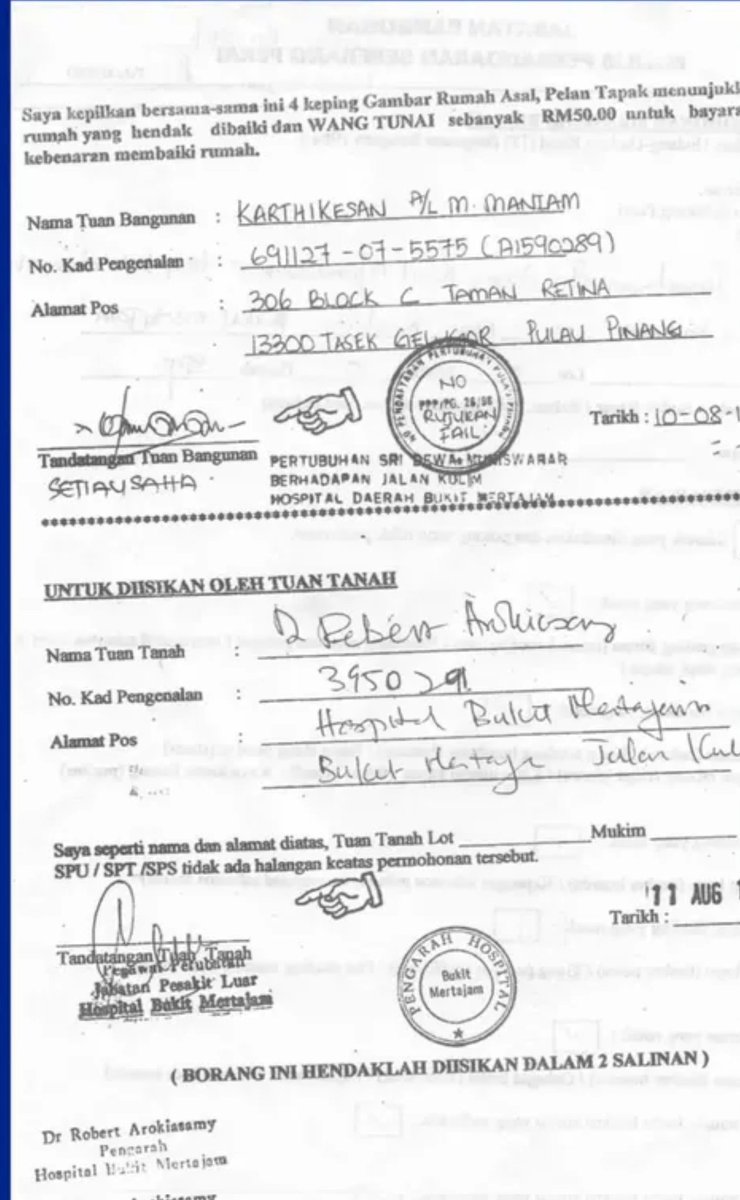 Saya kepilkan bersama-sama ini 4 keping Gambar Rumah Asal, Pelan Tapak menunjukk
rumah yang hendak dibaiki dan WANG TUNAI sebanyak RM50.00 nntuk bayara
kebenaran membaiki rumah.
Nama Tuan Bangunan : KARTHIKESAN A/L M. MANIAM
No. Kad Pengenalan : 691127-07-5575 (A1590289)
Alamat Pos : 306 BLOCK C TAMAN RETINA
13300 TASEK GELUGOR PULAU PINANG
NO PENDAFTARAN PERTUBUHAN PULAU PINANG
NO
PPP/PG. 26/86
RUJUKAN
FAIL
Tarikh : 10-08-1
Tandatangan Tuan Bangunan
SETIAUSAHA
PERTUBUHAN SRI DEWA MUNISWARAR
BERHADAPAN JALAN KULIM
HOSPITAL DAERAH BUKIT MERTAJAM
UNTUK DIISIKAN OLEH TUAN TANAH
Nama Tuan Tanah : D Robert Arokiasamy
No. Kad Pengenalan : 3950291
Alamat Pos : Hospital Bukit Mertajam
Bukit Mertajam Jalan Kul
Saya seperti nama dan alamat diatas, Tuan Tanah Lot Mukim
SPU / SPT /SPS tidak ada halangan keatas permohonan tersebut.
11 AUG 1
Tarikh :
Tandatangan Tuan Tanah
Pegawai Perubatan
Jabatan Pesakit Luar
Hospital Bukit Mertajam
PENGARAH HOSPITAL
Bukit
Mertajam
( BORANG INI HENDAKLAH DIISIKAN DALAM 2 SALINAN )
Dr Robert Arokiasamy
Pengarah
Hospital Bukit Mertajam